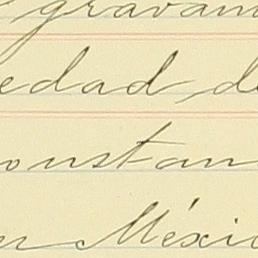 gravam
edad, de
onstan
n Méxic